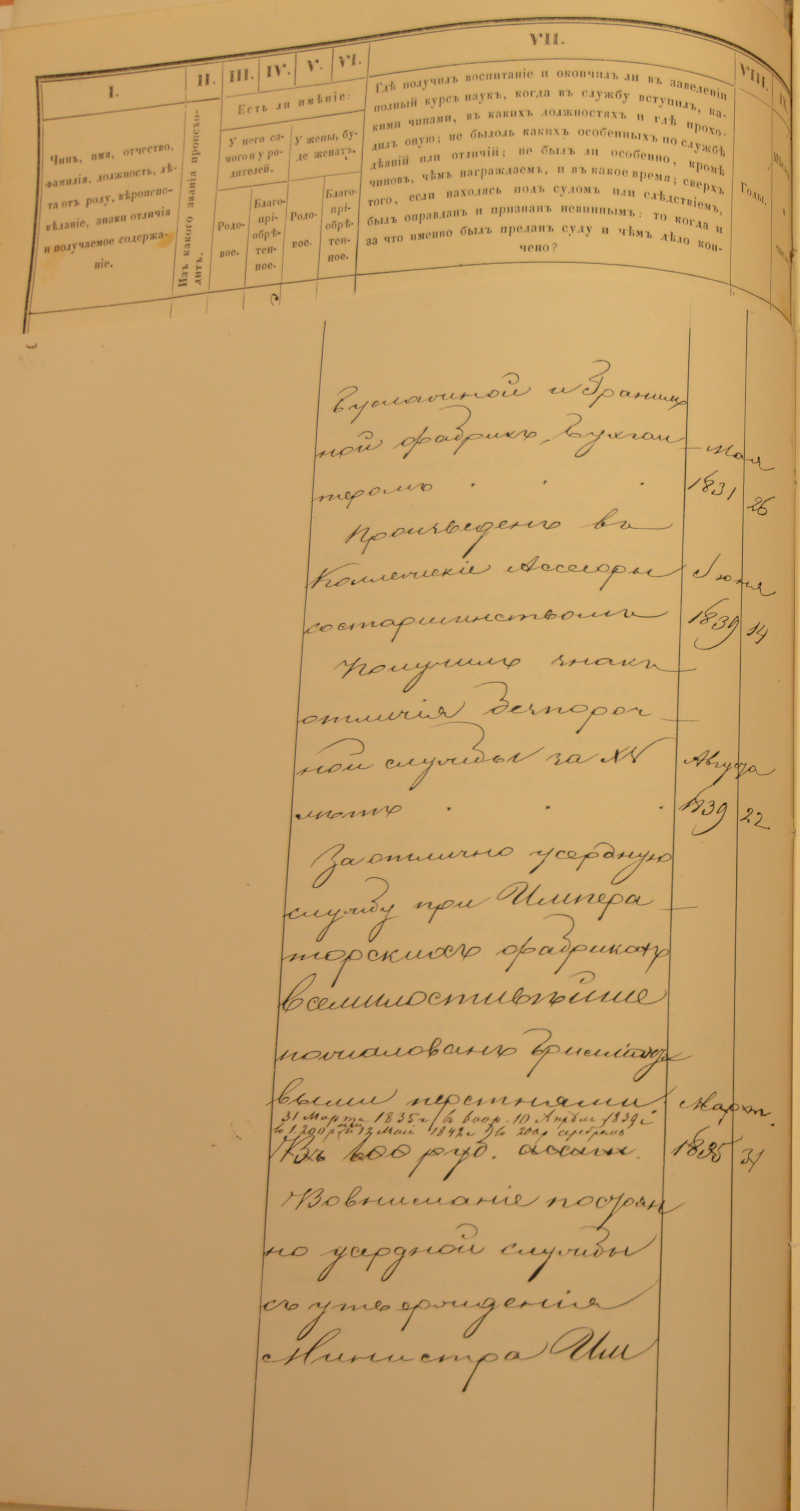 I.
II.
III.
IV.
V.
VI.
VII.
VIII.
Чинъ, имя, отчество,
фамилія, должность, лѣ-
та отъ роду, вѣроиспо-
вѣданіе, знаки отличія
и получаемое содержа-
ніе.
Изъ какого званія происхо-
дитъ.
Есть ли имѣніе:
У него са-
мого и у ро-
дителей.
У жены, бу-
де женатъ.
Родо-
вое.
Благо-
прі-
обрѣ-
тен-
ное.
Родо-
вое.
Благо-
прі-
обрѣ-
тен-
ное.
Гдѣ получилъ воспитаніе и окончилъ ли въ заведеніи
полный курсъ наукъ, когда въ службу вступилъ, ка-
кими чинами, въ какихъ должностяхъ и гдѣ прохо-
дилъ оную; не былоль какихъ особенныхъ по службѣ
дѣяній или отличій; не былъ ли особенно, кромѣ
чиновъ, чѣмъ награждаемъ, и въ какое время; сверхъ
того, если находясь подъ судомъ или слѣдствіемъ,
былъ оправданъ и признанъ невиннымъ; то когда и
за что именно былъ преданъ суду и чѣмъ дѣло кон-
чено?
Годы.
Бумажной и Гранил
ной фабрикъ Бухгал Мая
теромъ 1831 26
Произведенъ въ
Колежскіе Ассесоры Іюня
со старшинствомъ 1839 14
Получилъ знакъ
отличія безпороч
ной службы за XV Авгу
лѣтъ 1839 22
За отлично усердную
службу при Импера
торскихъ фабрикахъ
Всемилостивѣйше
пожалованъ
31 Марта 1835 10 1839
12 Мая 1842 200р серебромъ
Март
въ руб. ассигн. 1835 31
Во вниманіе постоян
но усердной службы
съ учрежденія
Министра Им